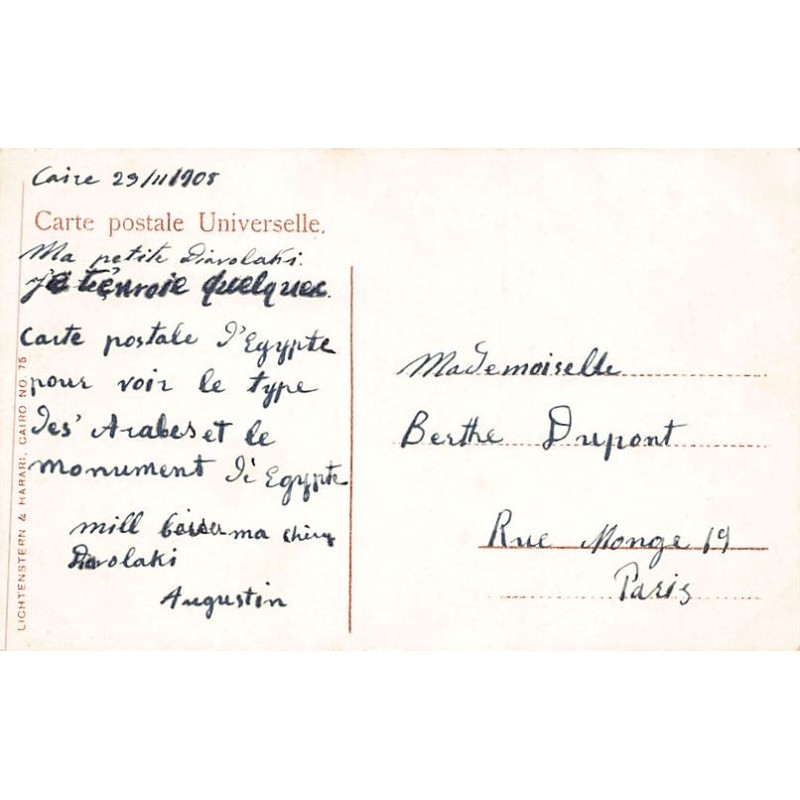 Caire 29/11/1908
Carte postale Universelle.
Ma petite Diavolaki.
je t'envoie quelques
carte postale d'Egypte
pour voir le type
des Arabes et le
monument di Egypte
mill ma chère
Diavolaki
Augustin
Mademoiselle
Berthe Dupont
Rue Monge 19
Paris
LICHTENSTERN & HARARI, CAIRO NO. 75